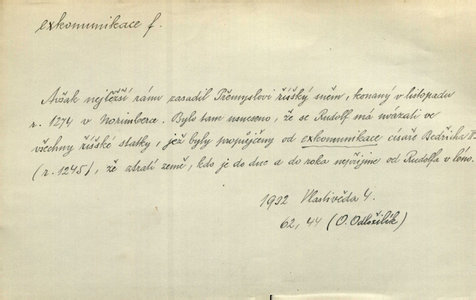 exkomunikace f.
Avšak nejtěžší ránu zasadil Přemyslovi říšský sněm, konaný v listopadu
r. 1274 v Norimberce. Bylo tam usneseno, že se Rudolf má uvázati ve
všechny říšské statky, jež byly propůjčeny od exkomunikace císaře Bedřicha II
(r. 1245), že ztratí země, kdo je do dne a do roka nepřijme od Rudolfa v léno.
1932 Vlastivěda 4.
62, 44 (O. Odložilík)